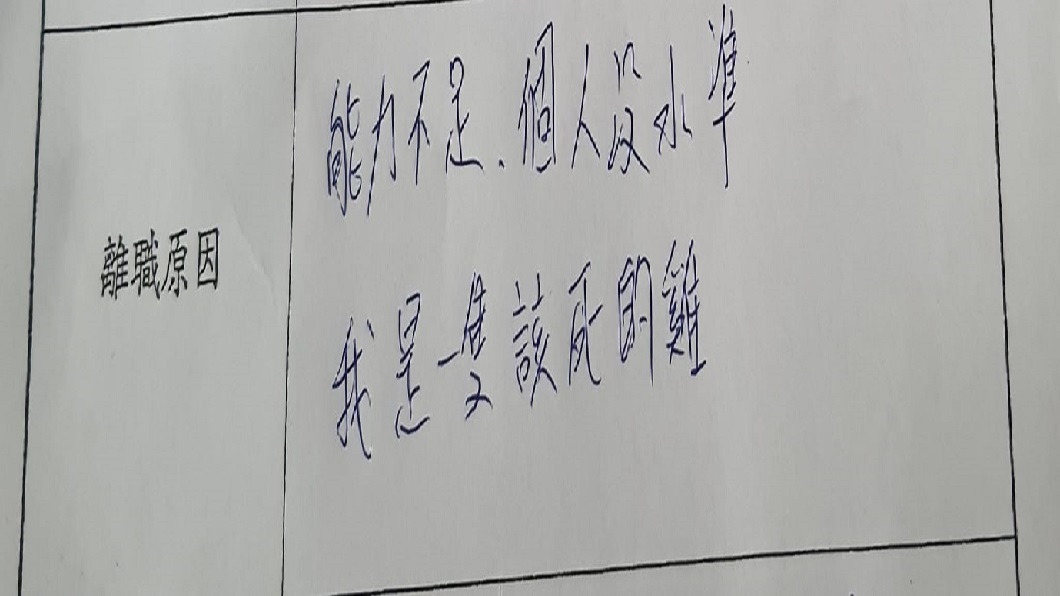 離職原因
能力不足、個人沒水準
我是一隻該死的雞